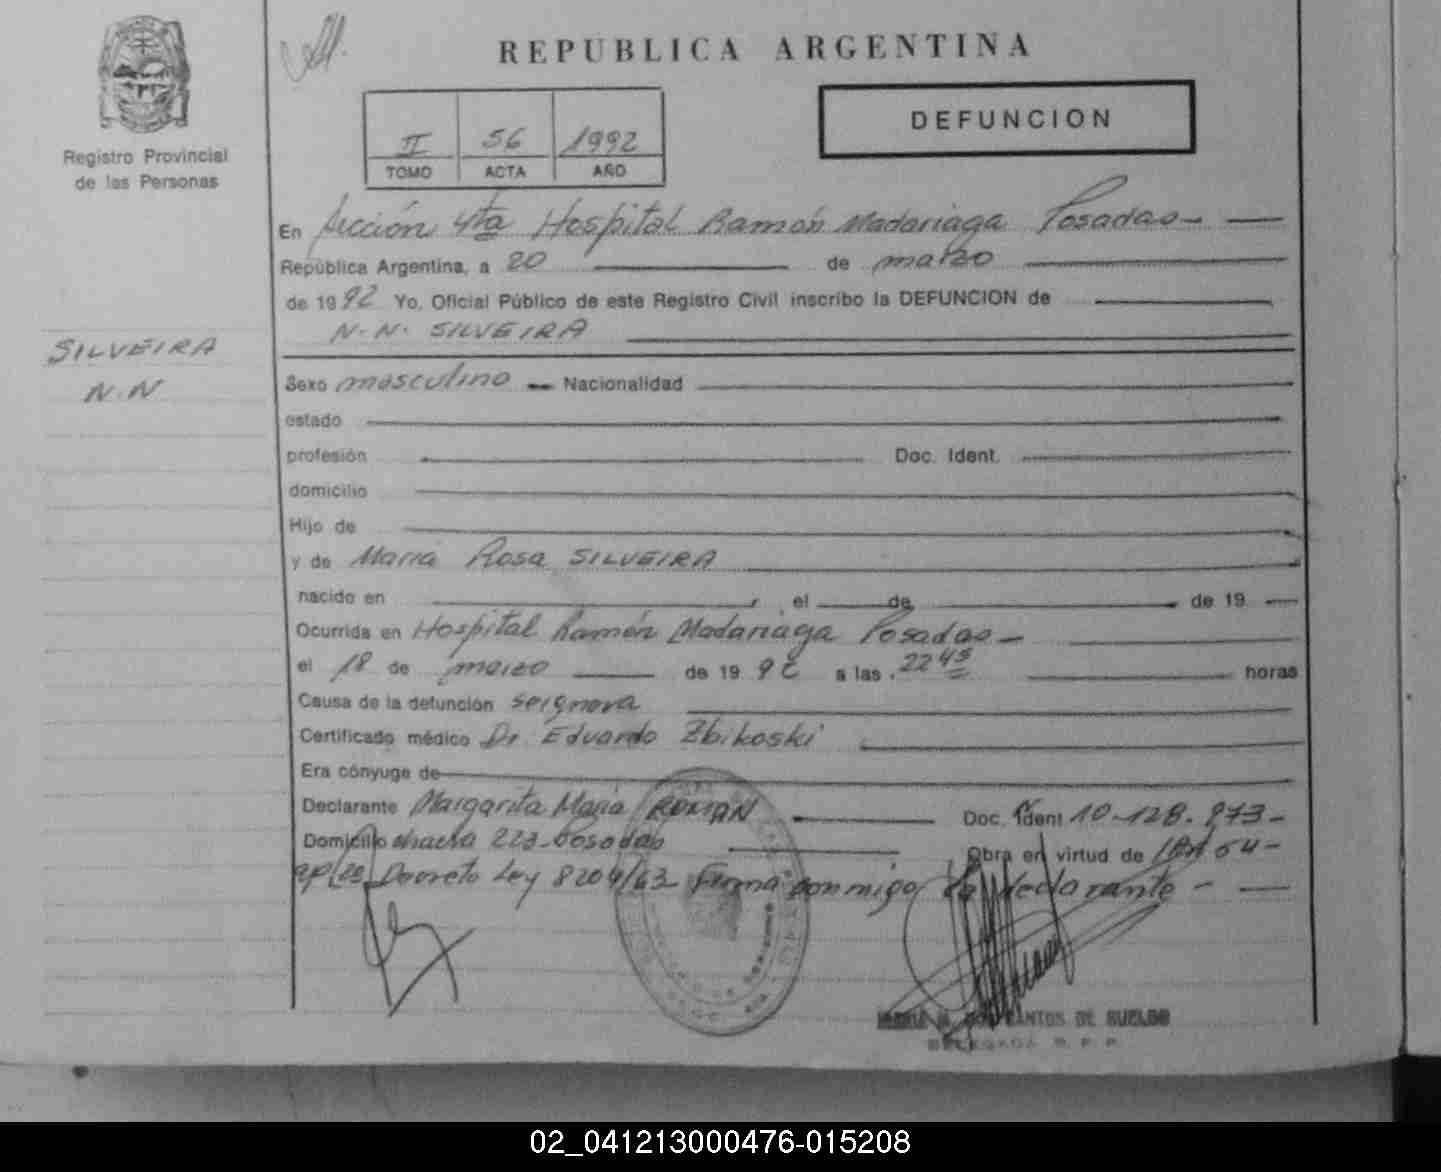 REPUBLICA ARGENTINA
Registro Provincial
de las Personas
II 56 1992
TOMO ACTA AÑO
DEFUNCION
En Sección 4ta Hospital Ramón Madariaga Posadas
República Argentina, a 20 de marzo
de 1992 Yo, Oficial Público de este Registro Civil inscribo la DEFUNCION de
N.N. SILVEIRA
SILVEIRA
N.N
Sexo masculino Nacionalidad
estado
profesión Doc. Ident.
domicilio
Hijo de
y de Maria Rosa SILVEIRA
nacido en , el de de 19
Ocurrida en Hospital Ramón Madariaga Posadas
el 18 de marzo de 1992 a las 22 45 horas
Causa de la defunción
Certificado médico Dr. Eduardo Zbikoski
Era cónyuge de
Declarante Margarita Maria ROMAN Doc. Ident 10.128.973
Domicilio chacra 223 Posadas Obra en virtud de
Decreto Ley 8204/63 Firma conmigo la declarante
DOS SANTOS DE SUELDO
DELEGADA R. P. P.
02_041213000476-015208